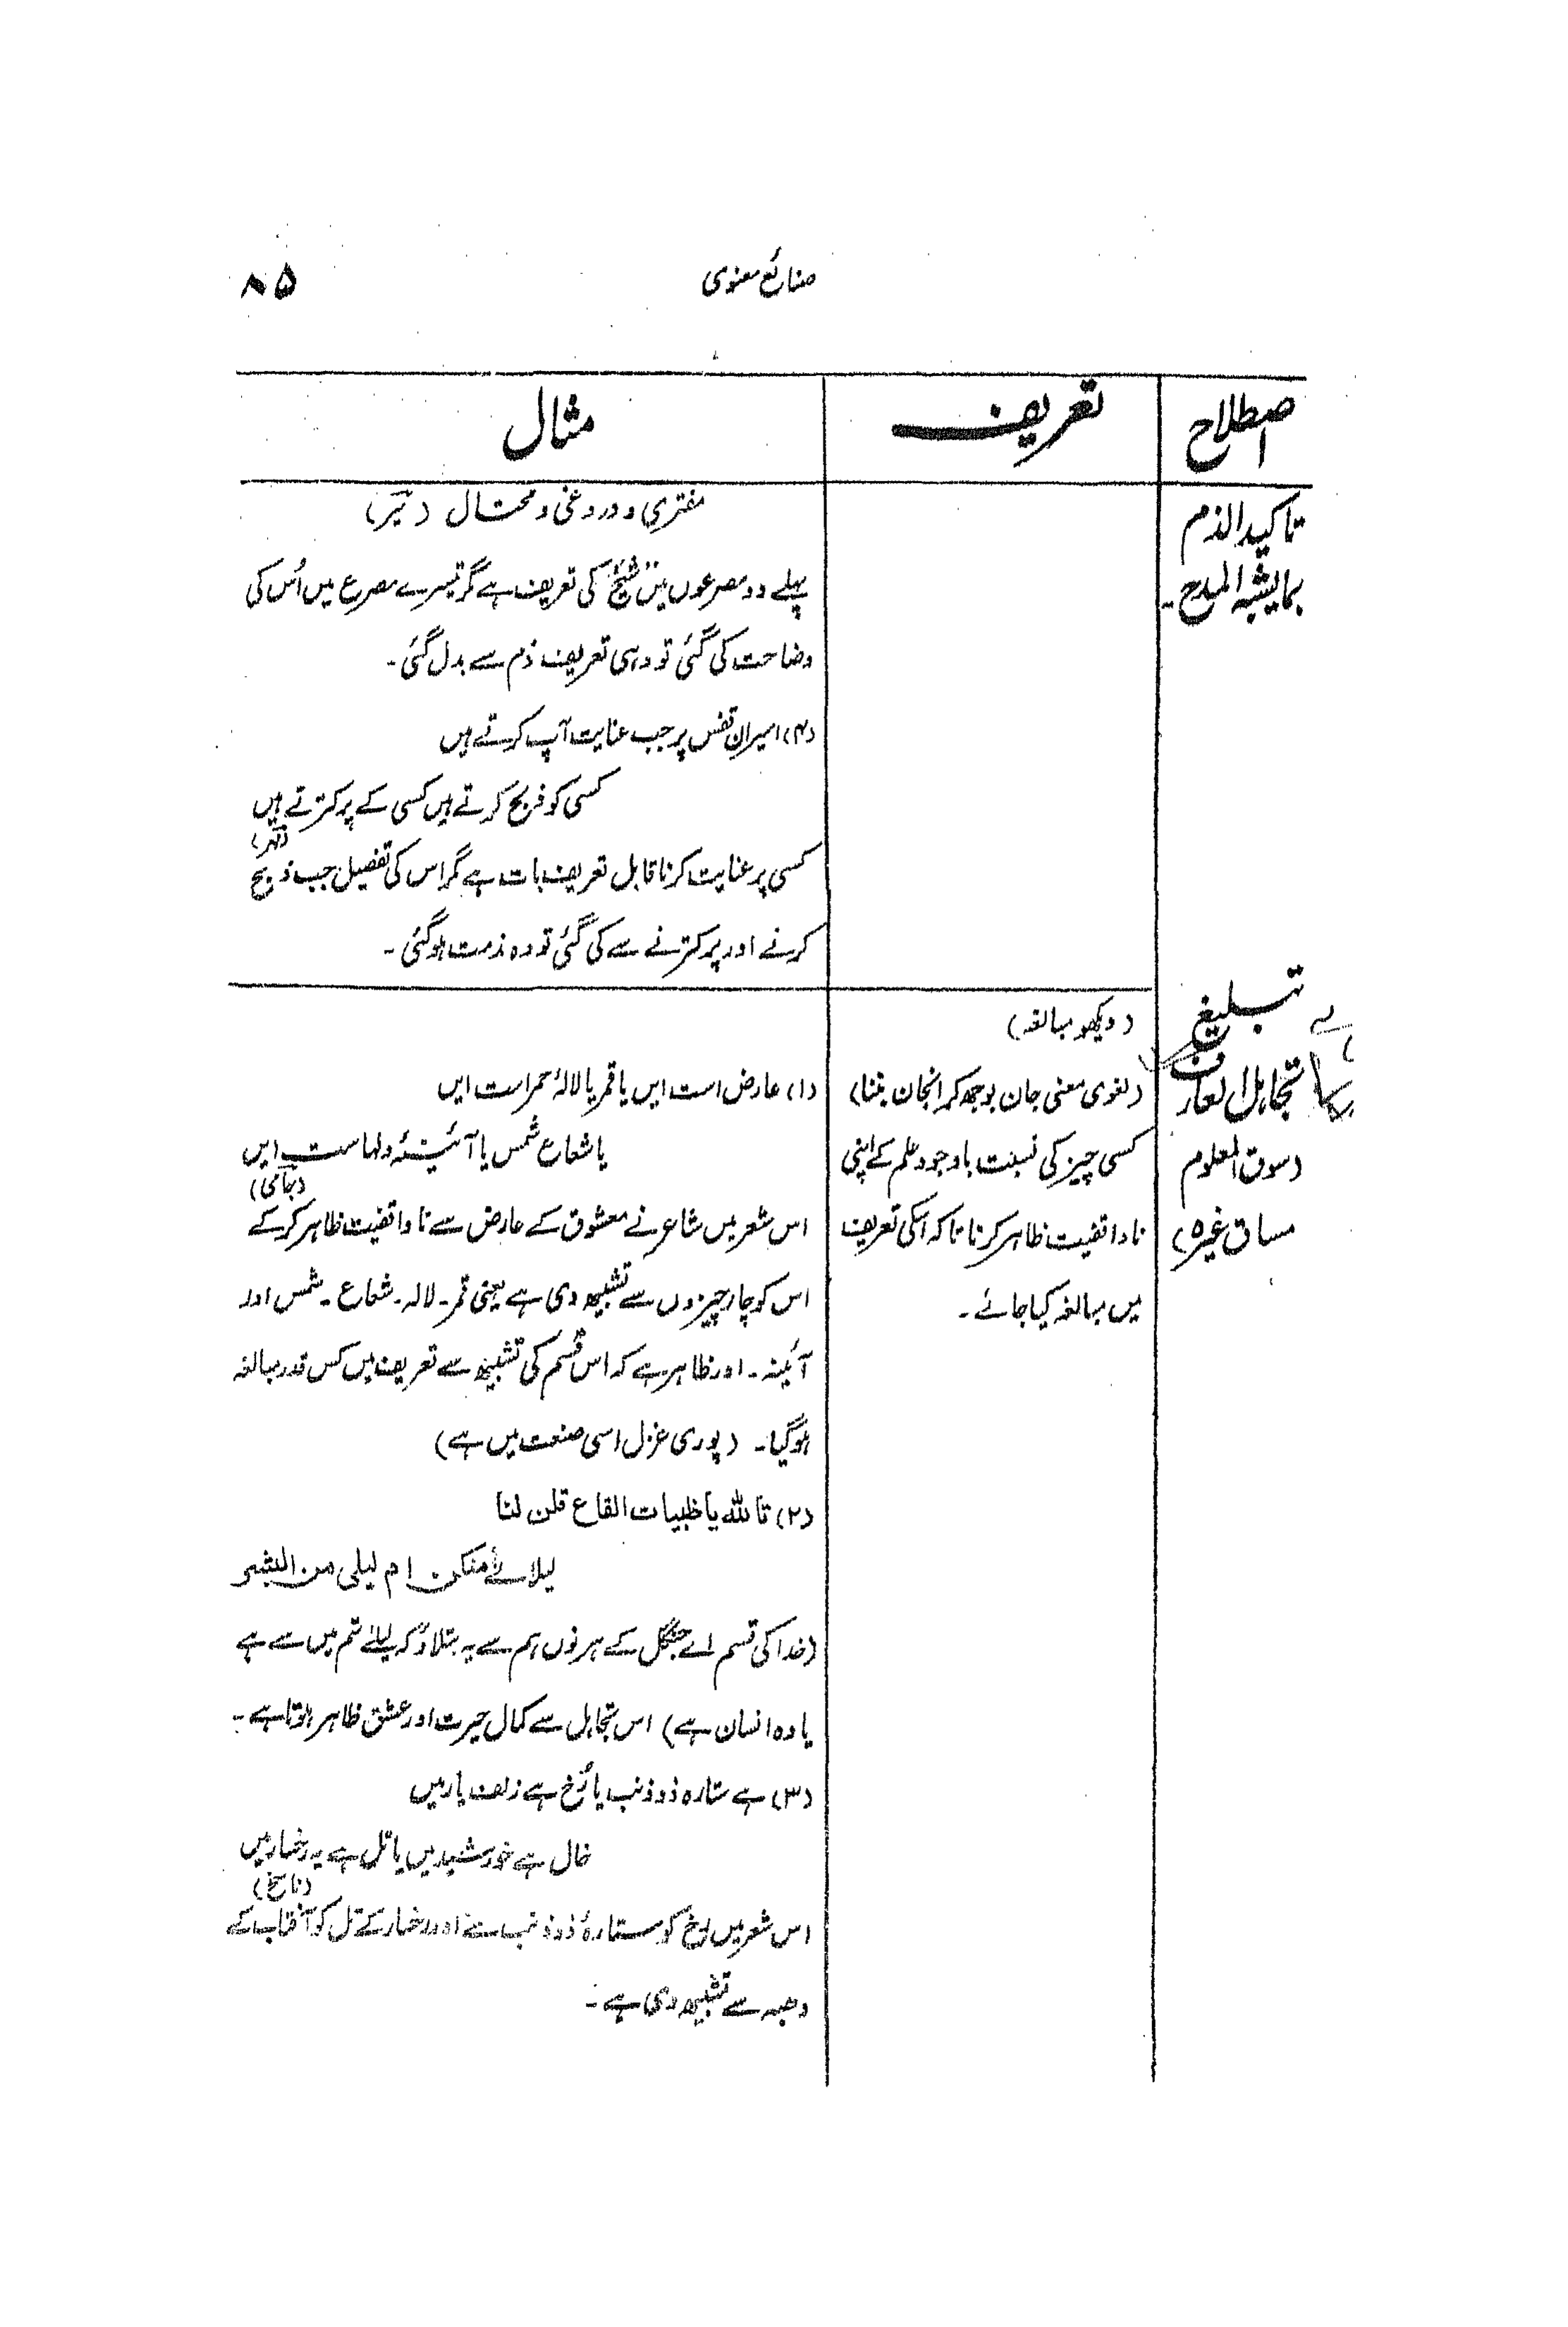 صنائع معنوی
۸۵
اصطلاح
تعریف
مثال
تاکید الذم
بمایشبہ المدح۔
مفتری و دروغی و محتال (نیر)
پہلے دو مصرعوں میں شیخ کی تعریف ہے مگر تیسرے مصرع میں اُس کی
وضاحت کی گئی تو وہی تعریف ذم سے بدل گئی۔
(۴) اسیرانِ قفس پر جب عنایت آپ کرتے ہیں
کسی کو ذبح کرتے ہیں کسی کے پر کترتے ہیں
کسی پر عنایت کرنا قابل تعریف بات ہے مگر اس کی تفصیل جب ذبح
کرنے اور پر کترنے سے کی گئی تو وہ مذمت ہوگئی۔
تبلیغ
(دیکھو مبالغہ)
تجاہل العارف
(سوق المعلوم
مساق غیرہ)
(لغوی معنی جان بوجھ کر انجان بننا)
کسی چیز کی نسبت باوجود علم کے اپنی
ناواقفیت ظاہر کرنا تاکہ اسکی تعریف
میں مبالغہ کیا جائے۔
(۱) عارض است ایں یا قمر یا لالۂ حمراست ایں
یا شعاع شمس یا آئینۂ دلہاست ایں
(جامی)
اس شعر میں شاعر نے معشوق کے عارض سے ناواقفیت ظاہر کرکے
اس کو چار چیزوں سے تشبیہ دی ہے یعنی قمر۔ لالہ۔ شعاع۔ شمس اور
آئینہ۔ اور ظاہر ہے کہ اس قسم کی تشبیہ سے تعریف میں کس قدر مبالغہ
ہوگیا۔ (پوری غزل اسی صنعت میں ہے)
(۲) تاللہ یا ظبیات القاع قلن لنا
لیلائے منکن ام لیلی من البشر
(خدا کی قسم اے جنگل کے ہرنوں ہم سے یہ بتلاؤ کہ لیلیٰ تم میں سے ہے
یا وہ انسان ہے) اس تجاہل سے کمال حیرت اور عشق ظاہر ہوتا ہے۔
(۳) ہے ستارہ ذوذنب یا رُخ ہے زلف یار میں
خال ہے خورشید میں یا تل ہے یہ رخسار میں
(ناسخ)
اس شعر میں رخ کو ستارۂ ذوذنب سے اور رخسار کے تل کو آفتاب کے
دھبہ سے تشبیہ دی ہے۔